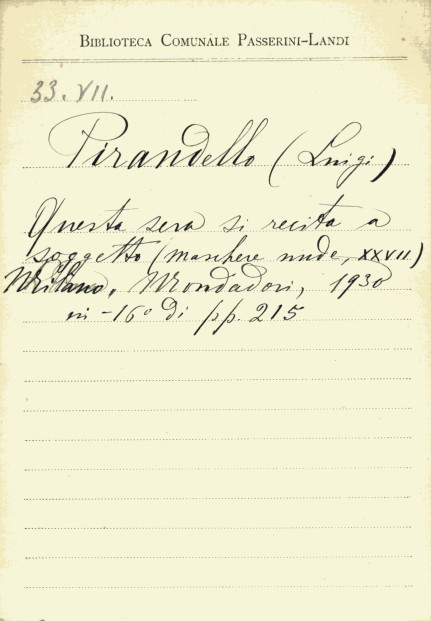 BIBLIOTECA COMUNALE PASSERINI-LANDI
33.VII.
Pirandello (Luigi)
Questa sera si recita a
soggetto (maschere nude, XXVII)
Milano, Mondadori, 1930
in-16° di pp. 215